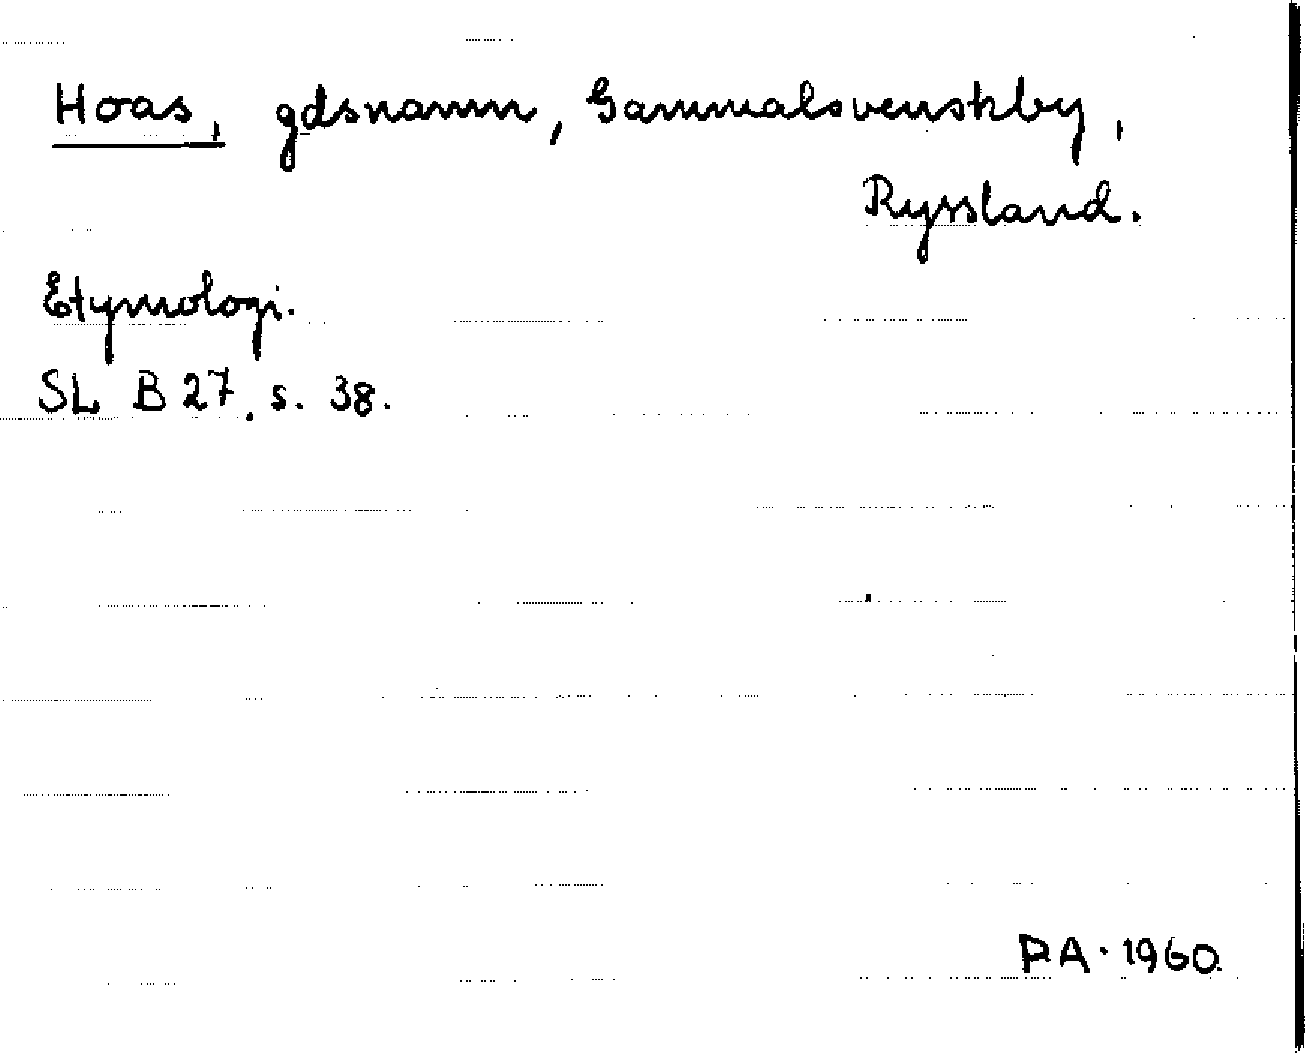 Hoas, gdsnamn, Gammalsvenskby,
Ryssland.
Etymologi.
SL B 27, s. 38.
P.A. 1960.